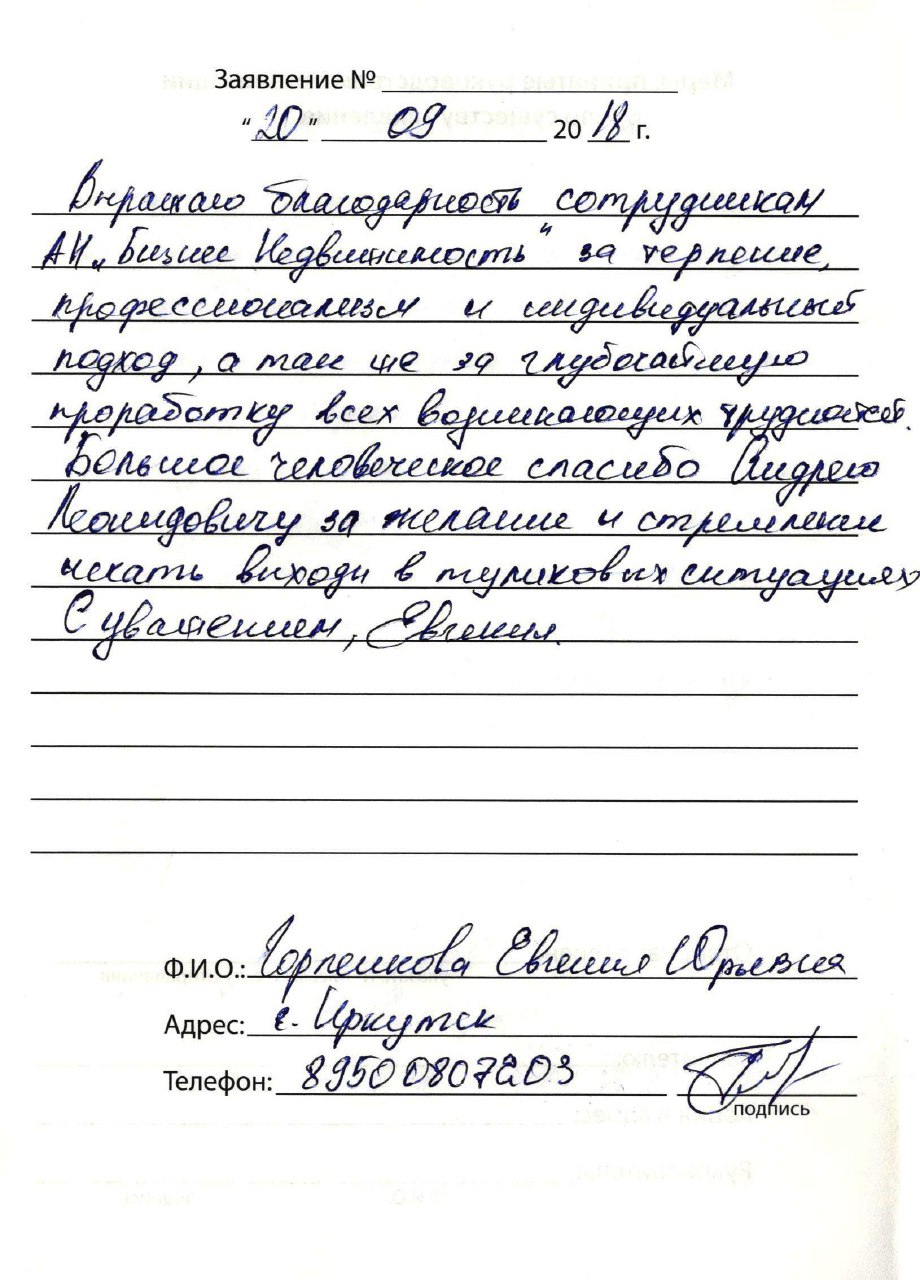 Заявление №
“20” 09 2018 г.
Выражаю благодарность сотрудникам
АН „Бизнес Недвижимость“ за терпение,
профессионализм и индивидуальный
подход, а так же за глубочайшую
проработку всех возникающих трудностей.
Большое человеческое спасибо Андрею
Леонидовичу за желание и стремление
искать выходы в тупиковых ситуациях
С уважением, Евгения.
Ф.И.О.: Горпенкова Евгения Юрьевна
Адрес: г. Иркутск
Телефон: 89500807203
подпись